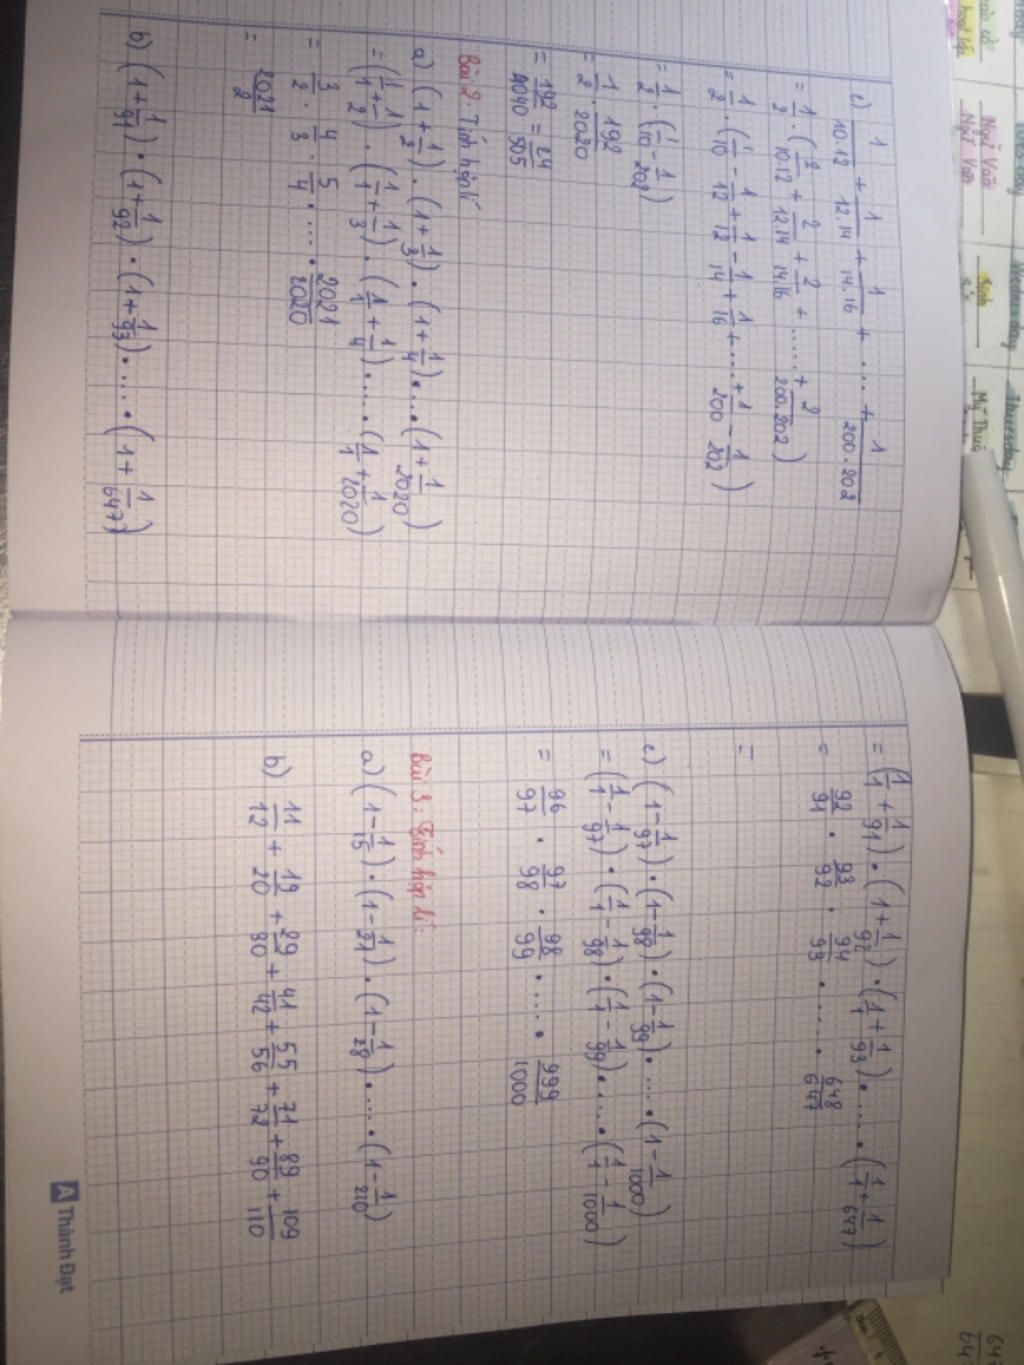 c) 1/10.12 + 1/12.14 + 1/14.16 + .... + 1/200.202
= 1/2 . (2/10.12 + 2/12.14 + 2/14.16 + ..... + 2/200.202)
= 1/2 . (1/10 - 1/12 + 1/12 - 1/14 + 1/16 + .... + 1/200 - 1/202)
= 1/2 . (1/10 - 1/202)
= 1/2 . 192/2020
= 192/4040 = 24/505
Bài 2: Tính hợp lí
a) (1+1/2) . (1+1/3) . (1+1/4) .... (1+1/2020)
= (1/1+1/2) . (1/1+1/3) . (1/1+1/4) ..... (1/1+1/2020)
= 3/2 . 4/3 . 5/4 . .... . 2021/2020
= 2021/2
b) (1+1/91) . (1+1/92) . (1+1/93) . .... . (1+1/647)
= (1/1+1/91) . (1+1/92) . (1/1+1/93) . .... . (1/1+1/647)
= 92/91 . 93/92 . 94/93 . ..... . 648/647
=
c) (1-1/97) . (1-1/98) . (1-1/99) . .... . (1-1/1000)
= (1/1-1/97) . (1/1-1/98) . (1/1-1/99) . .... . (1/1-1/1000)
= 96/97 . 97/98 . 98/99 . .... . 999/1000
Bài 3: Tính hợp lí:
a) (1-1/15) . (1-1/21) . (1-1/28) . .... . (1-1/210)
b) 11/12 + 19/20 + 29/30 + 41/42 + 55/56 + 71/72 + 89/90 + 109/110
Thành Đạt
Wednesday
Thursday
Ngữ Văn
Ngữ Văn
Sinh